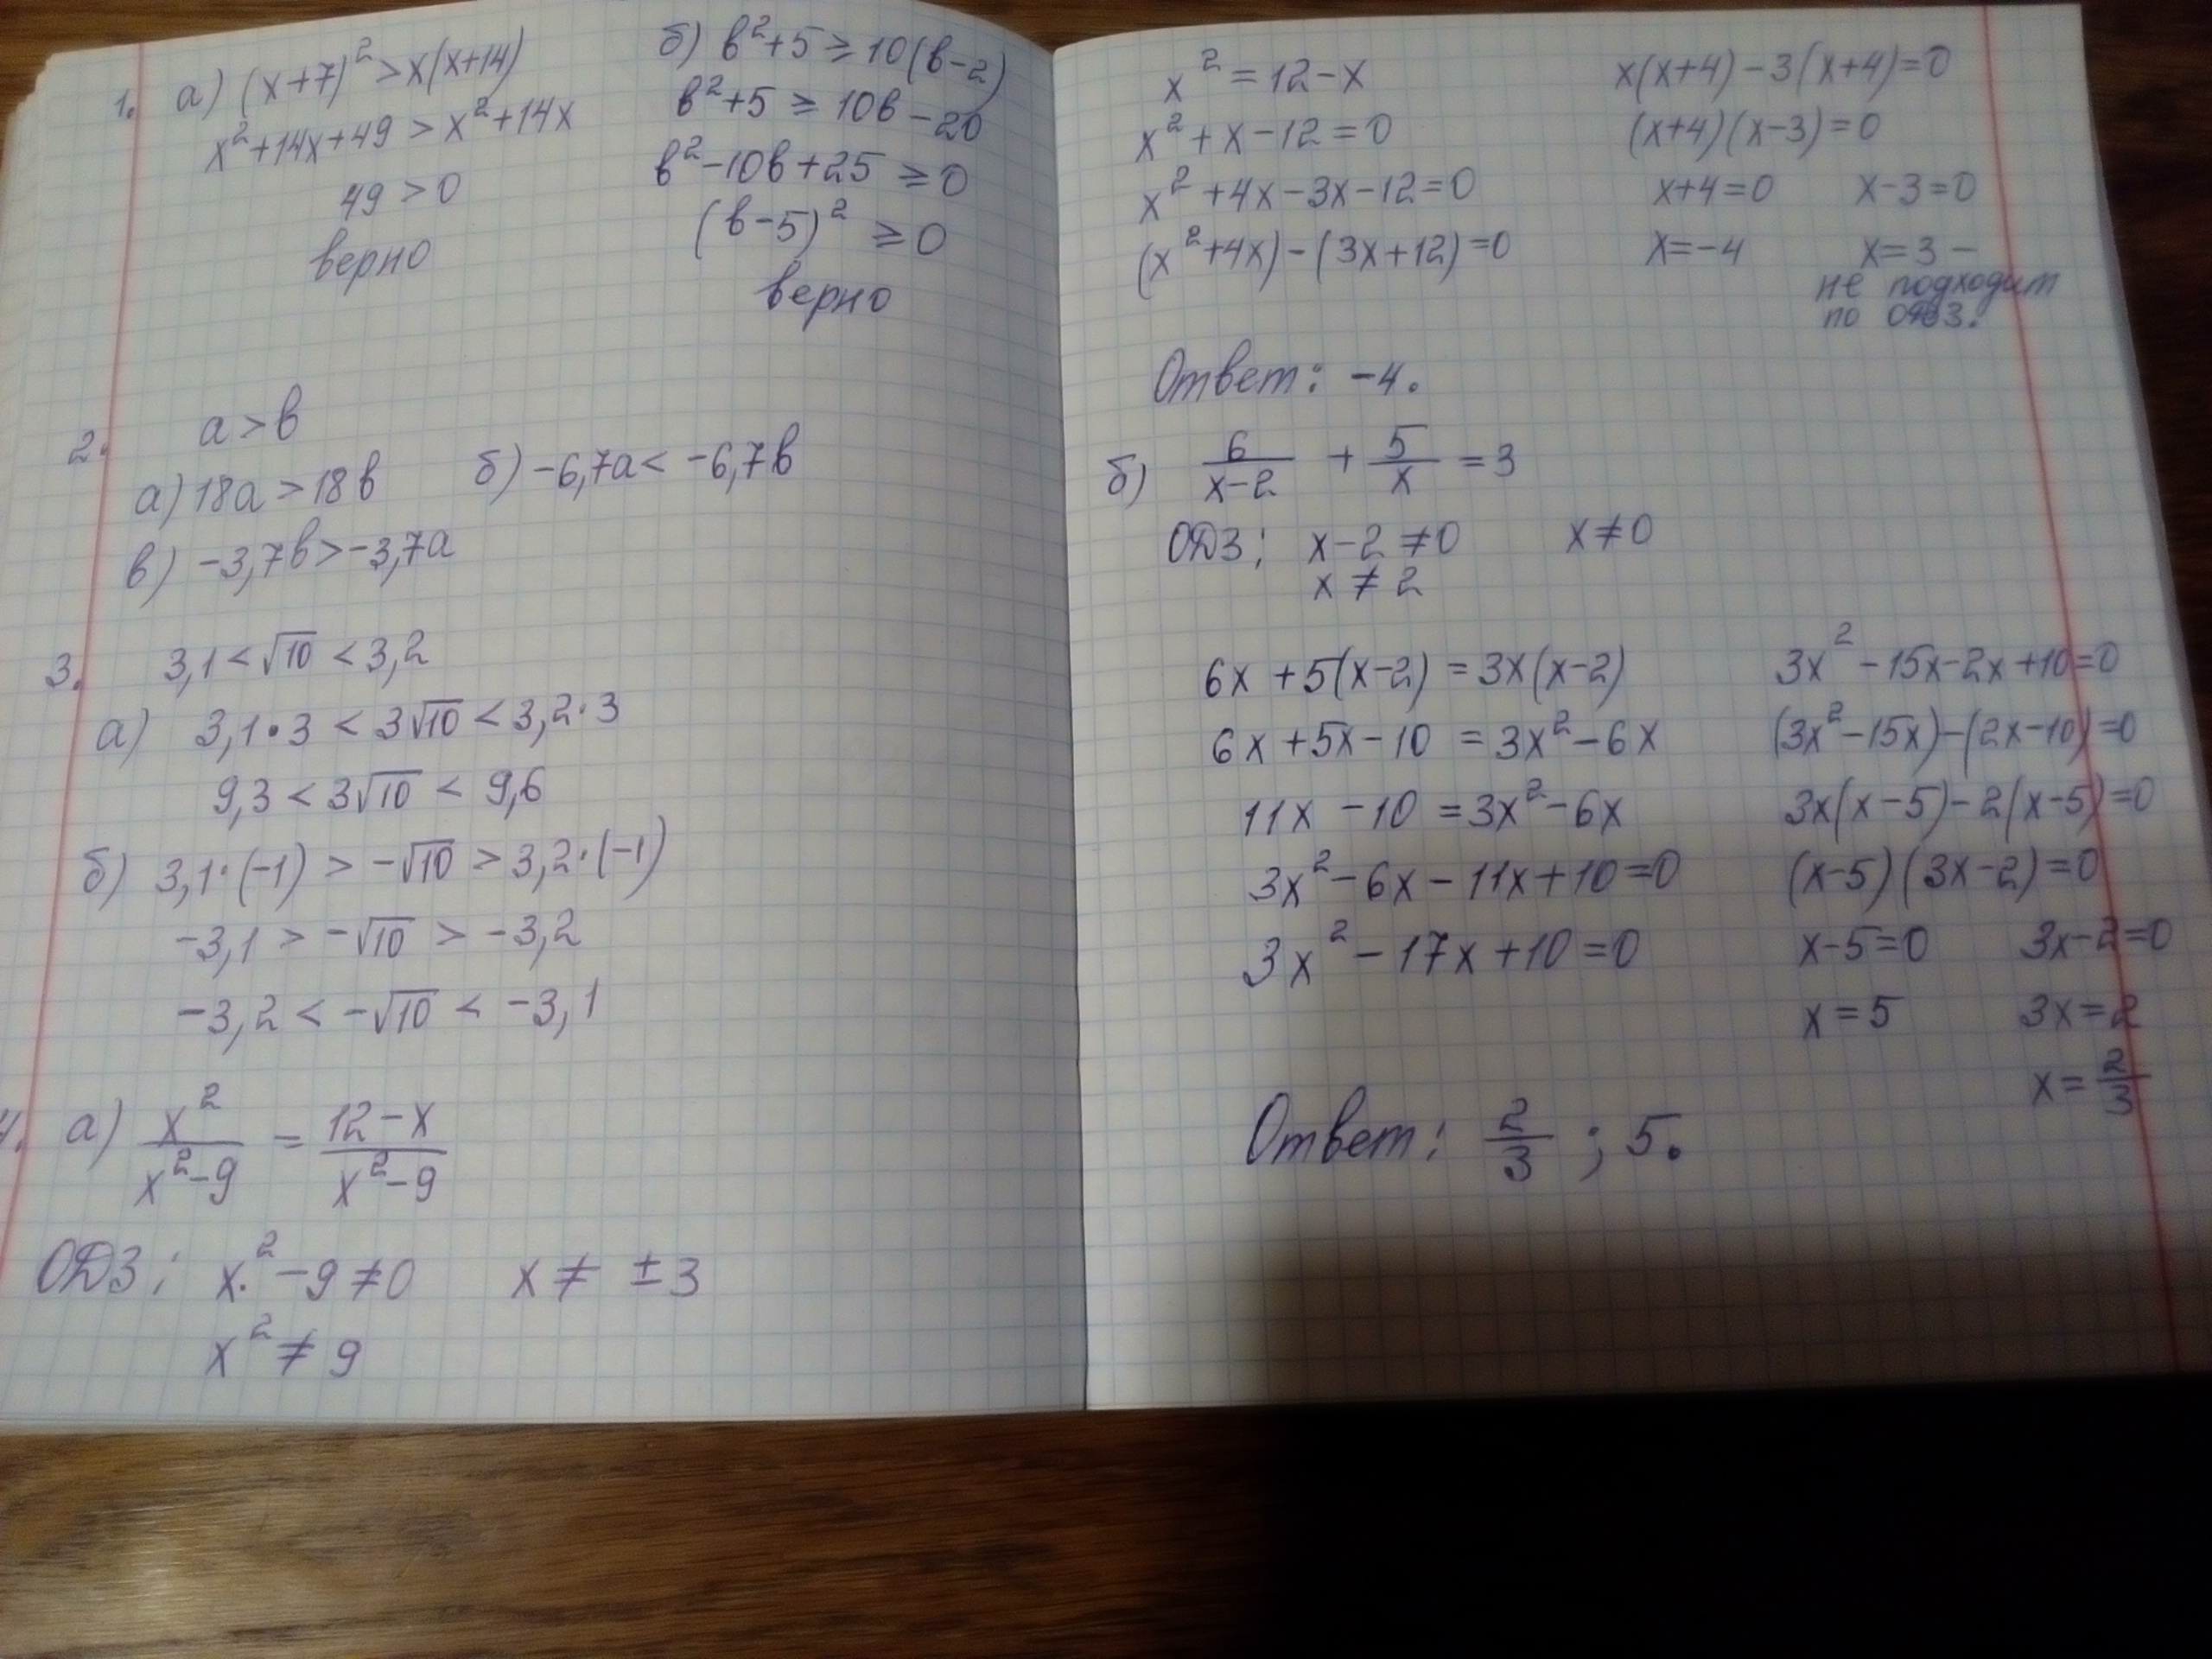 1. а) (x+7)² > x(x+14)
x²+14x+49 > x²+14x
49 > 0
верно
б) в²+5 ≥ 10(в-2)
в²+5 ≥ 10в-20
в²-10в+25 ≥ 0
(в-5)² ≥ 0
верно
2. а > в
а) 18а > 18в б) -6,7а < -6,7в
в) -3,7в > -3,7а
3. 3,1 < √10 < 3,2
а) 3,1·3 < 3√10 < 3,2·3
9,3 < 3√10 < 9,6
б) 3,1·(-1) > -√10 > 3,2·(-1)
-3,1 > -√10 > -3,2
-3,2 < -√10 < -3,1
4. а) x²/(x²-9) = (12-x)/(x²-9)
ОДЗ: x²-9≠0 x ≠ ±3
x² ≠ 9
x² = 12-x
x²+x-12=0
x²+4x-3x-12=0
(x²+4x)-(3x+12)=0
x(x+4)-3(x+4)=0
(x+4)(x-3)=0
x+4=0 x-3=0
x=-4 x=3 -
не подходит
по ОДЗ.
Ответ: -4.
б) 6/(x-2) + 5/x = 3
ОДЗ: x-2≠0 x≠0
x ≠ 2
6x+5(x-2) = 3x(x-2)
6x+5x-10 = 3x²-6x
11x-10 = 3x²-6x
3x²-6x-11x+10=0
3x²-17x+10=0
3x²-15x-2x+10=0
(3x²-15x)-(2x-10)=0
3x(x-5)-2(x-5)=0
(x-5)(3x-2)=0
x-5=0 3x-2=0
x=5 3x=2
x = 2/3
Ответ: 2/3 ; 5.